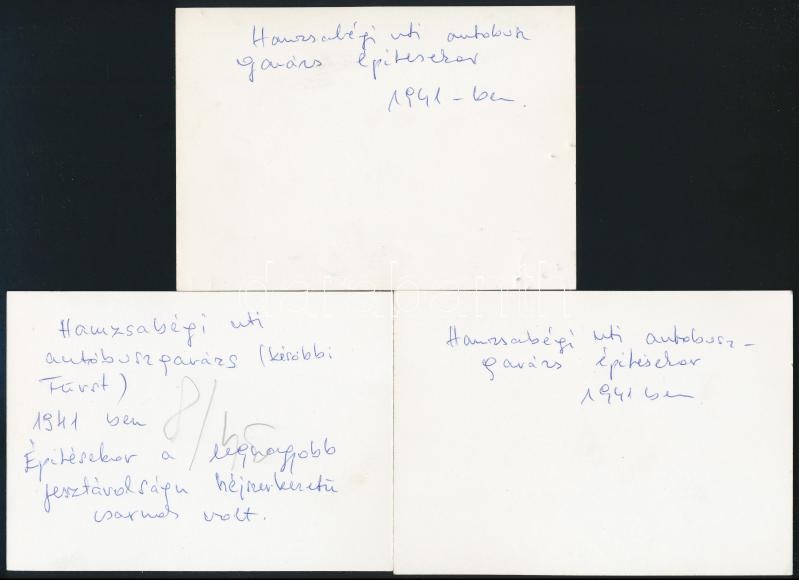 Hamzsabégi uti autobusz
garázs építésekor
1941-ben.
Hamzsabégi uti
autóbuszgarázs (későbbi
Fürst)
1941 ben
Építésekor a legnagyobb
fesztávolságu héjszerkezetü
csarnok volt.
8/45
Hamzsabégi uti autobusz-
garázs építésekor
1941 ben
darabanth